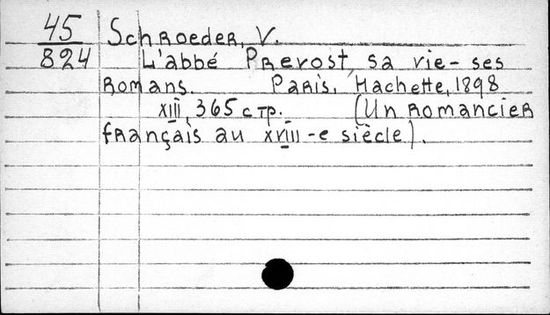 45 Schroeder, V.
824 L'abbé Prevost, sa vie - ses
romans. Paris, Hachette, 1898
XIII, 365 стр. (Un romancier
français au XVIII-e siècle).